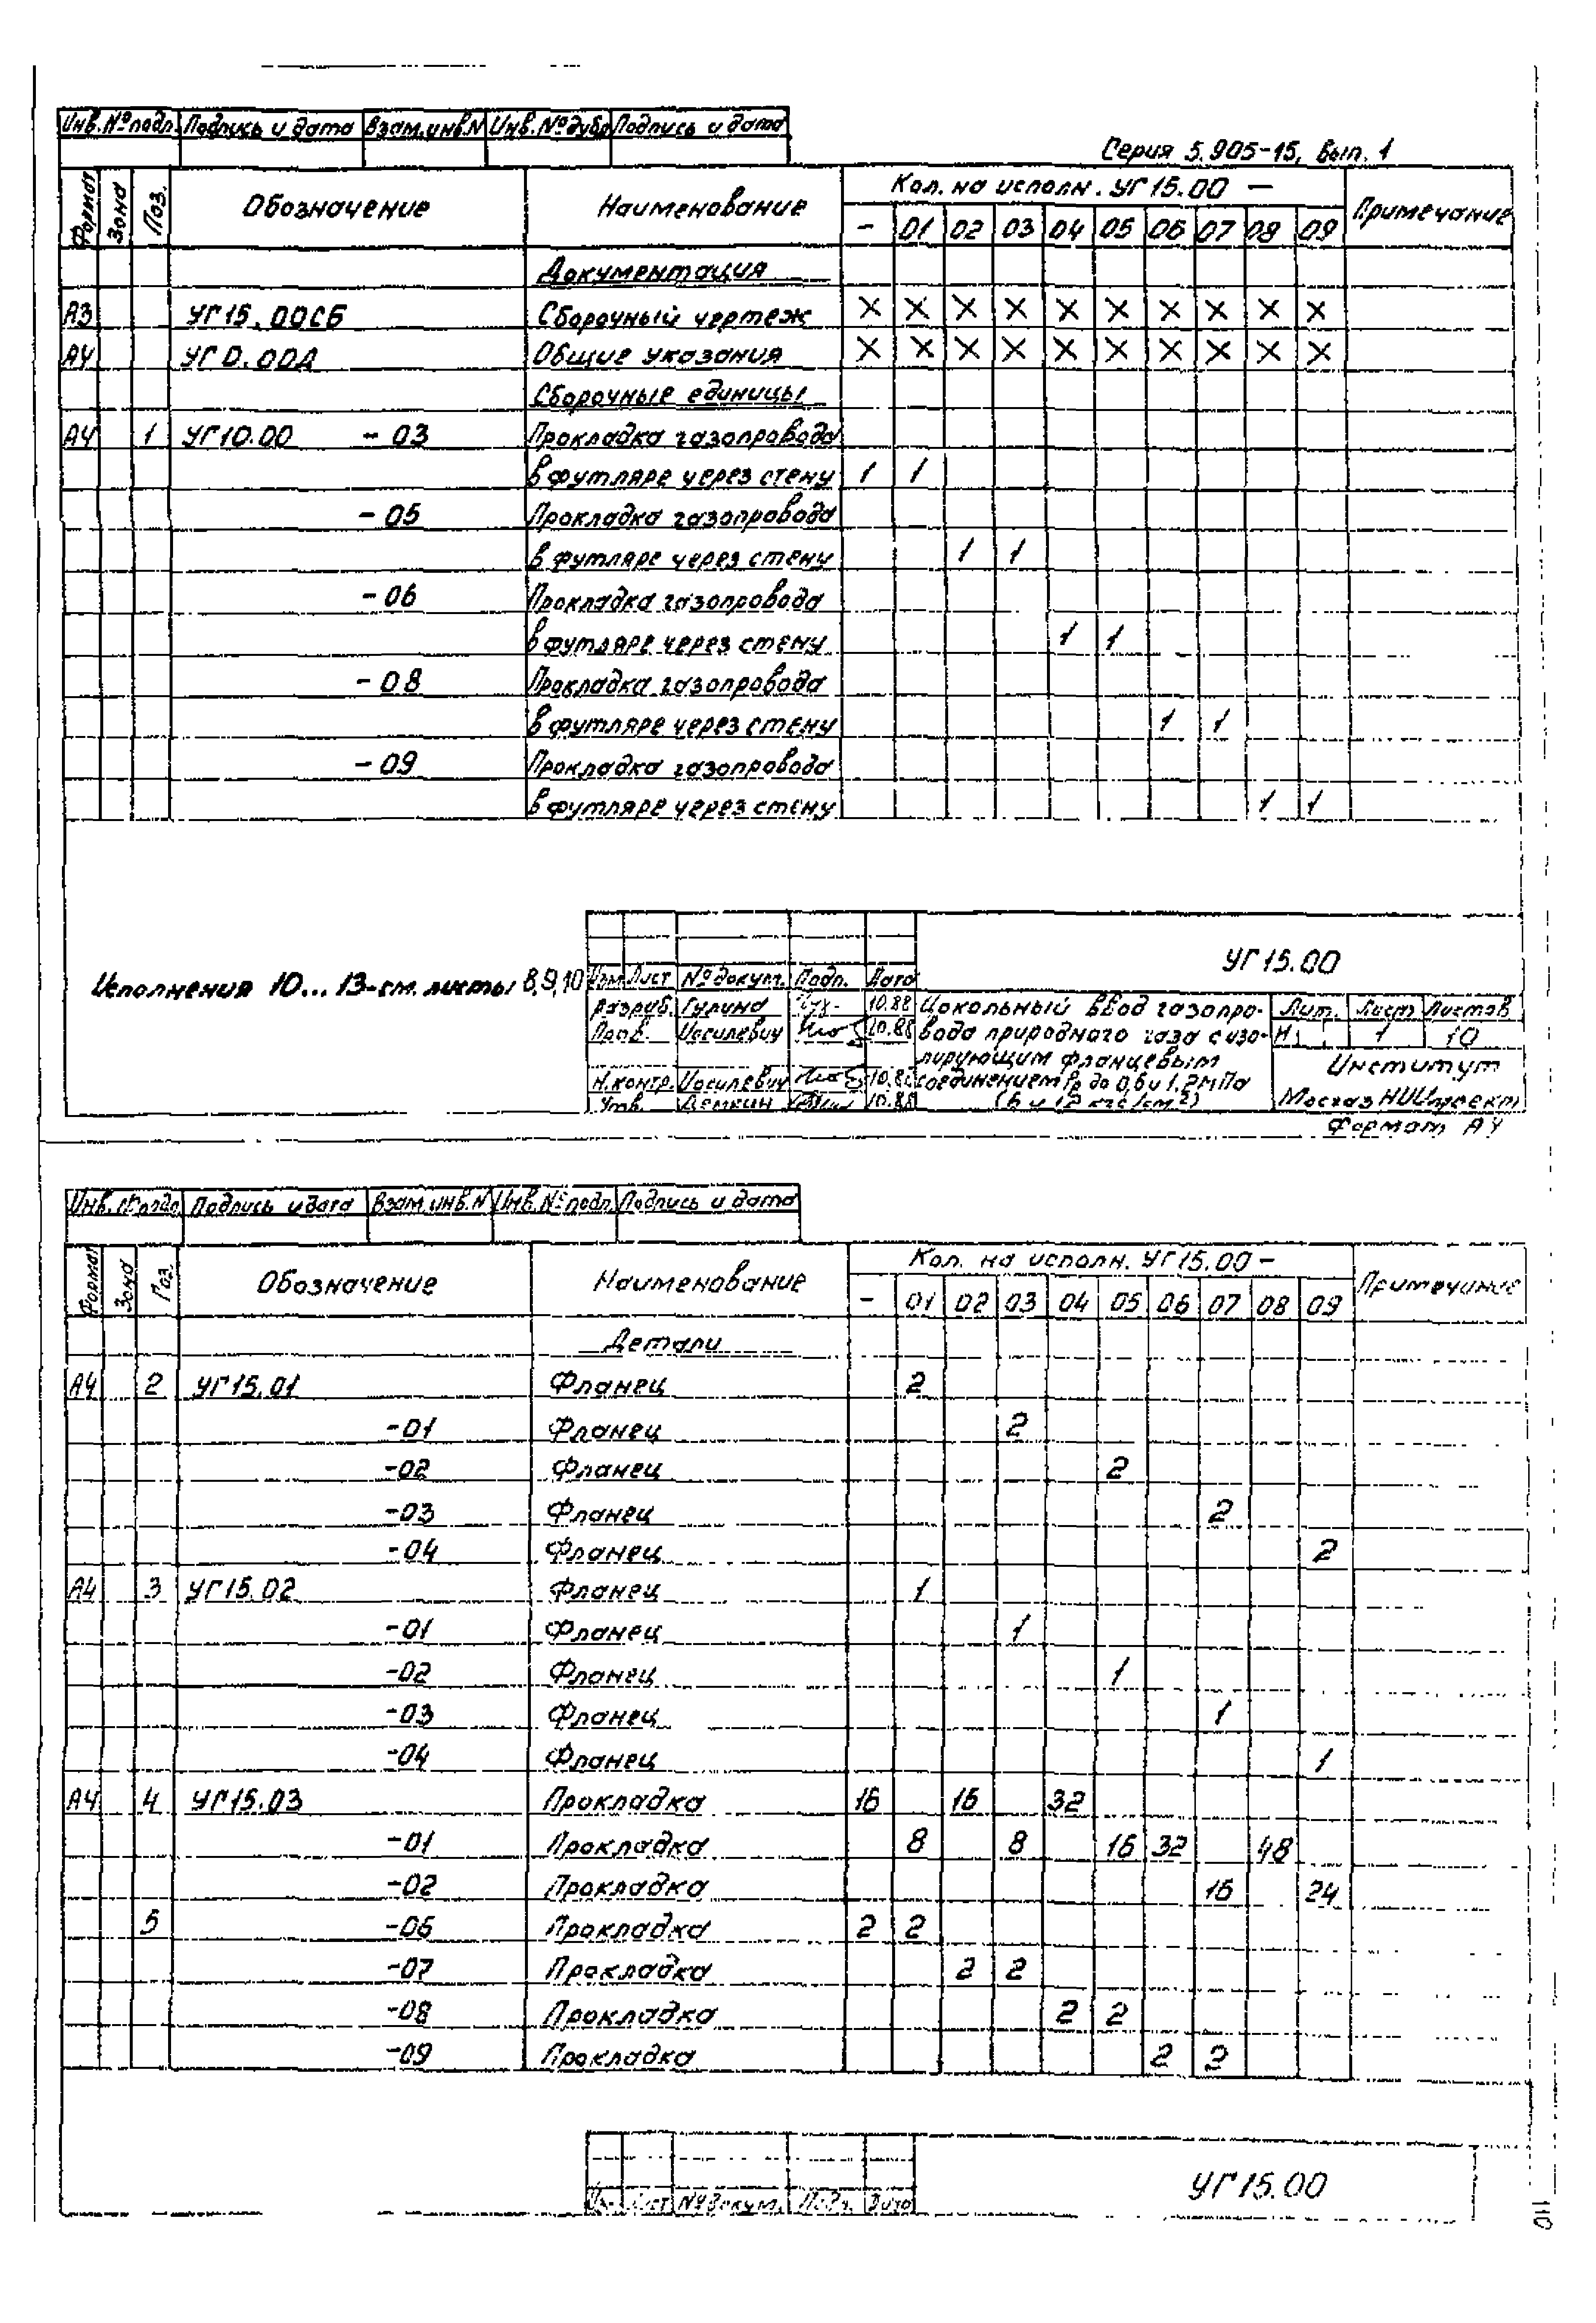 Инв. № подл. Подпись и дата Взам.инв.N Инв. № дубл Подпись и дата
Серия 5.905-15, вып. 1
Формат Зона Поз. Обозначение Наименование Кол. на исполн. УГ15.00 — Примечание
- 01 02 03 04 05 06 07 08 09
Документация
А3 УГ15.00СБ Сборочный чертеж X X X X X X X X X X
А4 УГ0.00Д Общие указания X X X X X X X X X X
Сборочные единицы
А4 1 УГ10.00 - 03 Прокладка газопровода
в футляре через стену 1 1
- 05 Прокладка газопровода
в футляре через стену 1 1
- 06 Прокладка газопровода
в футляре через стену 1 1
- 08 Прокладка газопровода
в футляре через стену 1 1
- 09 Прокладка газопровода
в футляре через стену 1 1
Исполнения 10...13-см. листы 8,9,10
УГ15.00
Изм Лист № докум. Подп. Дата
Разраб. Гурина 10.88
Пров. Иосилевич 10.88
Н.контр. Иосилевич 10.88
Утв. Демкин 10.88
Цокольный ввод газопро-
вода природного газа с изо-
лирующим фланцевым
соединением Рр до 0,6 и 1,2 мПа
(6 и 12 кгс/см2)
Лит. Лист Листов
И 1 10
Институт
МосгазНИИпроект
Формат А4
Инв. № подл Подпись и дата Взам.инв.N Инв. № подл. Подпись и дата
Формат Зона Поз. Обозначение Наименование Кол. на исполн. УГ15.00 - Примечание
- 01 02 03 04 05 06 07 08 09
Детали
А4 2 УГ15.01 Фланец 2
-01 Фланец 2
-02 Фланец 2
-03 Фланец 2
-04 Фланец 2
А4 3 УГ15.02 Фланец 1
-01 Фланец 1
-02 Фланец 1
-03 Фланец 1
-04 Фланец 1
А4 4 УГ15.03 Прокладка 16 16 32
-01 Прокладка 8 8 16 32 48
-02 Прокладка 16 24
5 -06 Прокладка 2 2
-07 Прокладка 2 2
-08 Прокладка 2 2
-09 Прокладка 2 2
Лист № докум. Подп. Дата
УГ15.00
110